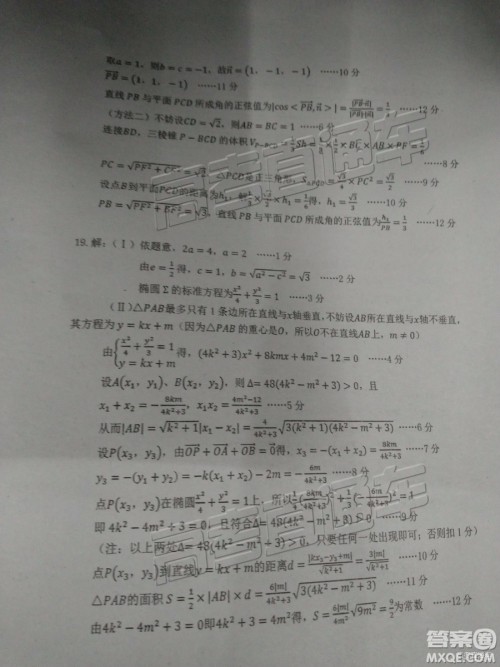 取a=1，则b=c=-1，故n⃗=(1, -1, -1) ……10 分
PB⃗=(1, 1, -1) ……11 分
直线 PB 与平面 PCD 所成角的正弦值为|cos<PB⃗,n⃗>|= ……12 分
（方法二）不妨设CD=√2，则AB=BC=1 ……6 分
连接BD，三棱锥 P-BCD 的体积
……8 分
设点B到平面PCD的距离为h₁ ……10 分
直线 PB 与平面 PCD 所成角的正弦值为h₁/PB=1/3 ……12 分
19.解：（Ⅰ）依题意、2a=4，a=2 ……1 分
由e=1/2得，c=1，b=√(a²-c²)=√3 ……2 分
椭圆 Σ 的标准方程为x²/4+y²/3=1 ……3 分
（Ⅱ）△PAB最多只有 1 条边所在直线与x轴垂直，不妨设AB所在直线与x轴不垂直，
其方程为y=kx+m（因为△PAB的重心是O，所以O不在直线AB上，m≠0）
由{x²/4+y²/3=1 y=kx+m 得，(4k²+3)x²+8kmx+4m²-12=0 ……4 分
设A(x₁, y₁)，B(x₂, y₂)，则 Δ=48(4k²-m²+3)>0，且
x₁+x₂=-8km/(4k²+3)，x₁x₂=(4m²-12)/(4k²+3) ……5 分
从而|AB|=√(k²+1)|x₁-x₂|=4/(4k²+3)√(3(k²+1)(4k²-m²+3)) ……6 分
设P(x₃, y₃)，由OP⃗+OA⃗+OB⃗=0⃗得，x₃=-(x₁+x₂)=8km/(4k²+3) ……7 分
y₃=-(y₁+y₂)=-k(x₁+x₂)-2m=-6m/(4k²+3) ……8 分
点P(x₃, y₃)在椭圆x²/4+y²/3=1上，所以1/4(8km/(4k²+3))²+1/3(-6m/(4k²+3))²=1
即4k²-4m²+3=0，且符合Δ=48(4k²-m²+3)>0 ……9 分
（注：以上两处Δ=48(4k²-m²+3)>0，只要任何一处出现即可；否则扣 1 分）
点P(x₃, y₃)到直线y=kx+m的距离d=|kx₃-y₃+m|/√(k²+1)=3|m|/√(k²+1) ……10 分
△PAB的面积 S=1/2×|AB|×d=6|m|/(4k²+3)√(3(4k²-m²+3)) ……11 分
由4k²-4m²+3=0即4k²+3=4m²得，S=6|m|/4m²√(9m²)=9/2为常数 ……12 分
高考直通车
答案圈
MXQE.COM